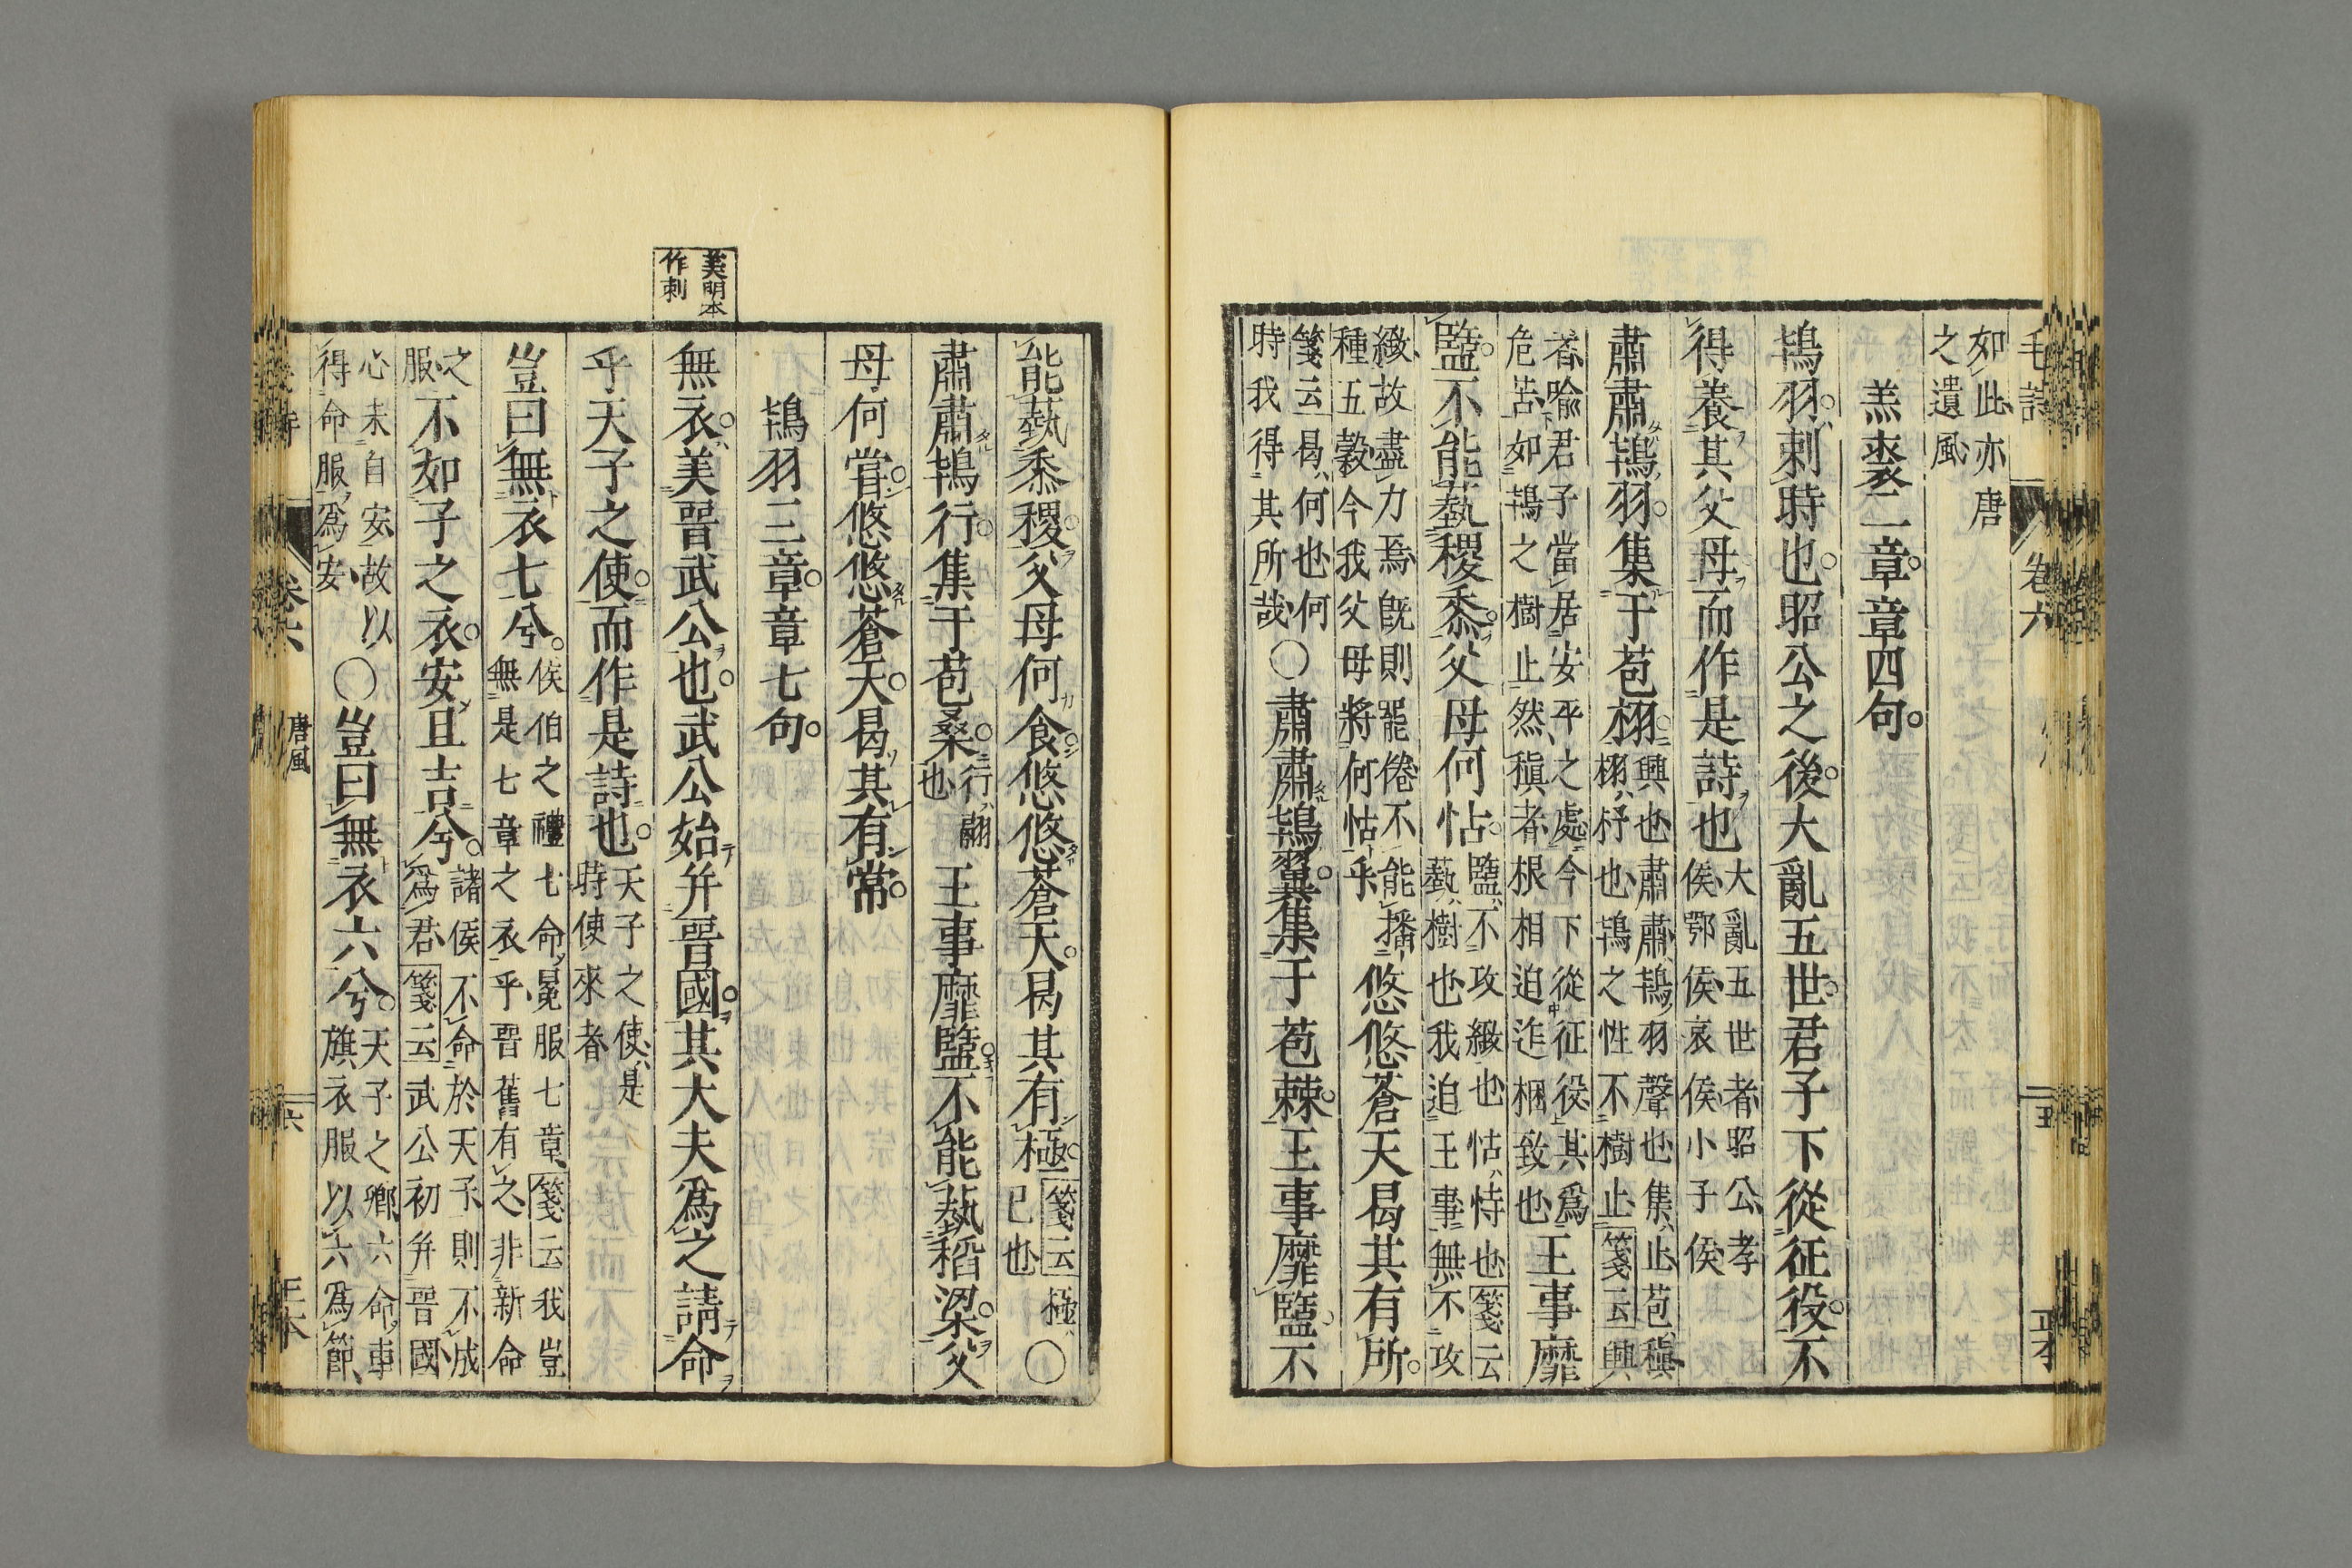 毛詩 卷六 正本
如此亦唐
之遺風
羔裘二章章四句
鴇羽刺時也昭公之後大亂五世君子下從征役不
得養其父母而作是詩也
大亂五世者昭公孝
侯鄂侯哀侯小子侯
肅肅鴇羽集于苞栩
興也肅肅鴇羽聲也集止苞稹
栩杼也鴇之性不樹止箋云興
者喻君子當居安平之處今下從征役其爲
危苦如鴇之樹止然稹者根相迫迮梱致也
王事靡
盬不能蓺稷黍父母何怙
盬不攻緻也怙恃也箋云
蓺樹也我迫王事無不攻
緻故盡力焉旣則罷倦不能播
種五穀今我父母將何怙乎
悠悠蒼天曷其有所
箋云曷何也何
時我得其所哉
〇肅肅鴇翼集于苞棘王事靡盬不
能蓺黍稷父母何食悠悠蒼天曷其有極
箋云極
已也
〇
肅肅鴇行集于苞桑
行翮
也
王事靡盬不能蓺稻粱父
母何嘗悠悠蒼天曷其有常
鴇羽三章章七句
美明本
作刺
無衣美晉武公也武公始幷晉國其大夫爲之請命
乎天子之使而作是詩也
天子之使是
時使來者
豈曰無衣七兮
侯伯之禮七命冕服七章箋云我豈
無是七章之衣乎晉舊有之非新命
之
服
不如子之衣安且吉兮
諸侯不命於天子則不成
爲君箋云武公初幷晉國
心未自安故以
得命服爲安
〇豈曰無衣六兮
天子之鄕六命車
旗衣服以六爲節
卷六 唐風 六 正本